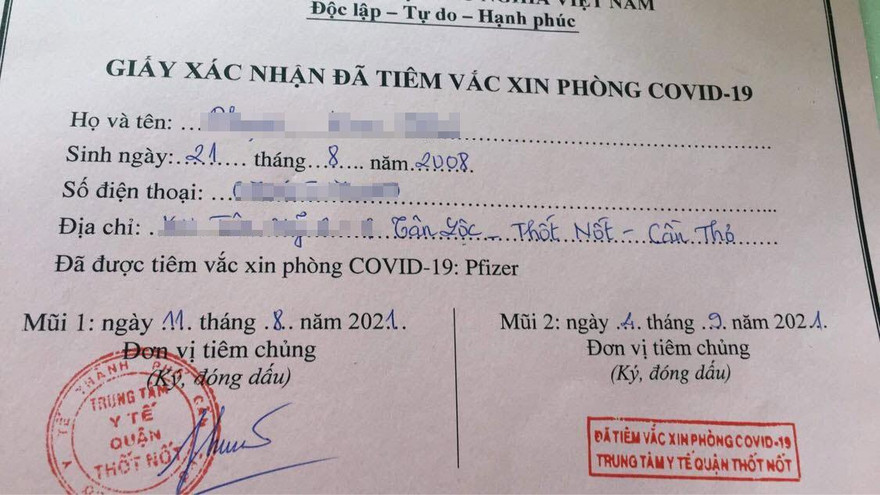 NGHĨA VIỆT NAM
Độc lập – Tự do – Hạnh phúc
GIẤY XÁC NHẬN ĐÃ TIÊM VẮC XIN PHÒNG COVID-19
Họ và tên:
Sinh ngày: 21 tháng 8 năm 2008
Số điện thoại:
Địa chỉ: Tân Lộc - Thốt Nốt - Cần Thơ
Đã được tiêm vắc xin phòng COVID-19: Pfizer
Mũi 1: ngày 11 tháng 8 năm 2021.
Đơn vị tiêm chủng
(Ký, đóng dấu)
Y TẾ THÀNH PHỐ CẦN
TRUNG TÂM
Y TẾ
QUẬN
THỐT NỐT
Mũi 2: ngày 4 tháng 9 năm 2021.
Đơn vị tiêm chủng
(Ký, đóng dấu)
ĐÃ TIÊM VẮC XIN PHÒNG COVID-19
TRUNG TÂM Y TẾ QUẬN THỐT NỐT